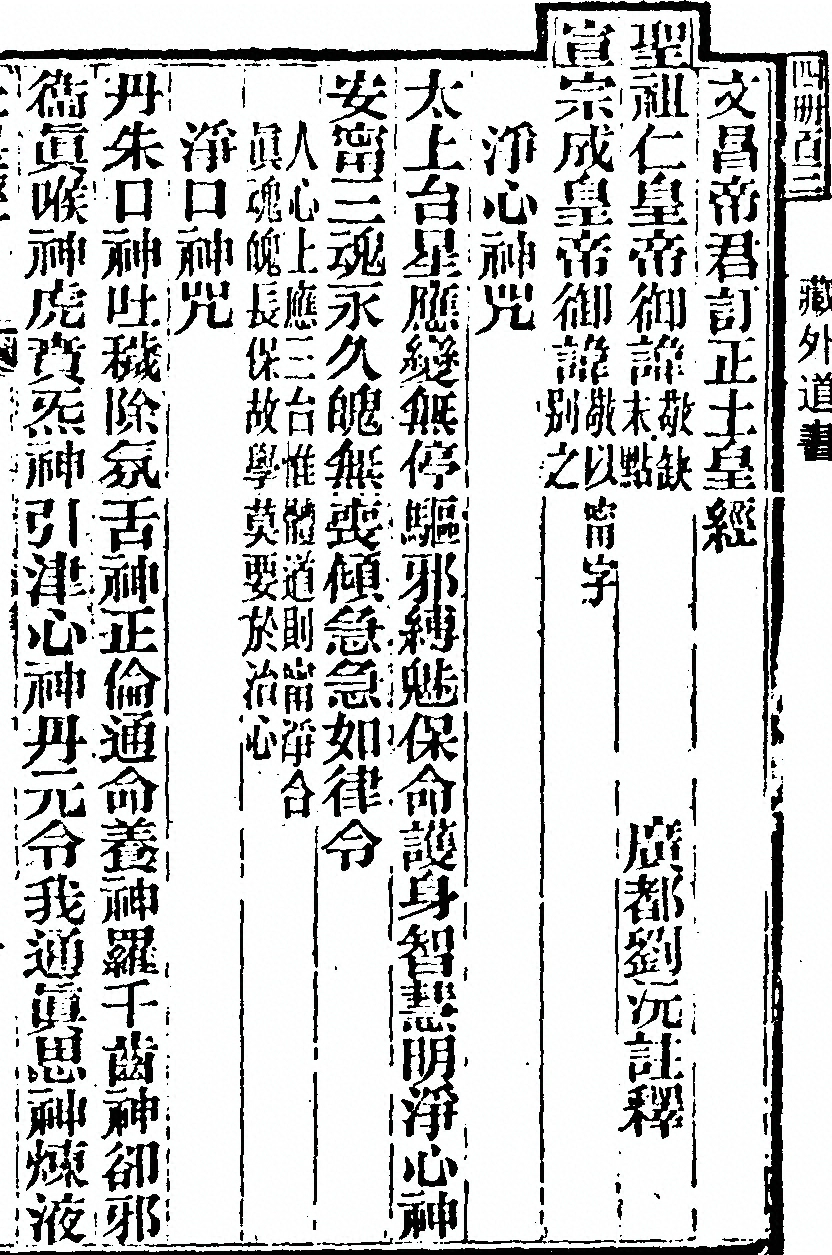 藏外道書
文昌帝君訂正土皇經
聖祖仁皇帝御諱敬缺末點　廣都劉沅註釋
宣宗成皇帝御諱敬以甯字別之
淨心神咒
太上台星應變無停驅邪縛魅保命護身智慧明淨心神
安甯三魂永久魄無喪傾急急如律令
人心上應三台惟體道則甯淨合
眞魂魄長保故學莫要於治心
淨口神咒
丹朱口神吐穢除氛舌神正倫通命養神羅千齒神卻邪
衞眞喉神虎賁炁神引津心神丹元令我通眞思神煉液